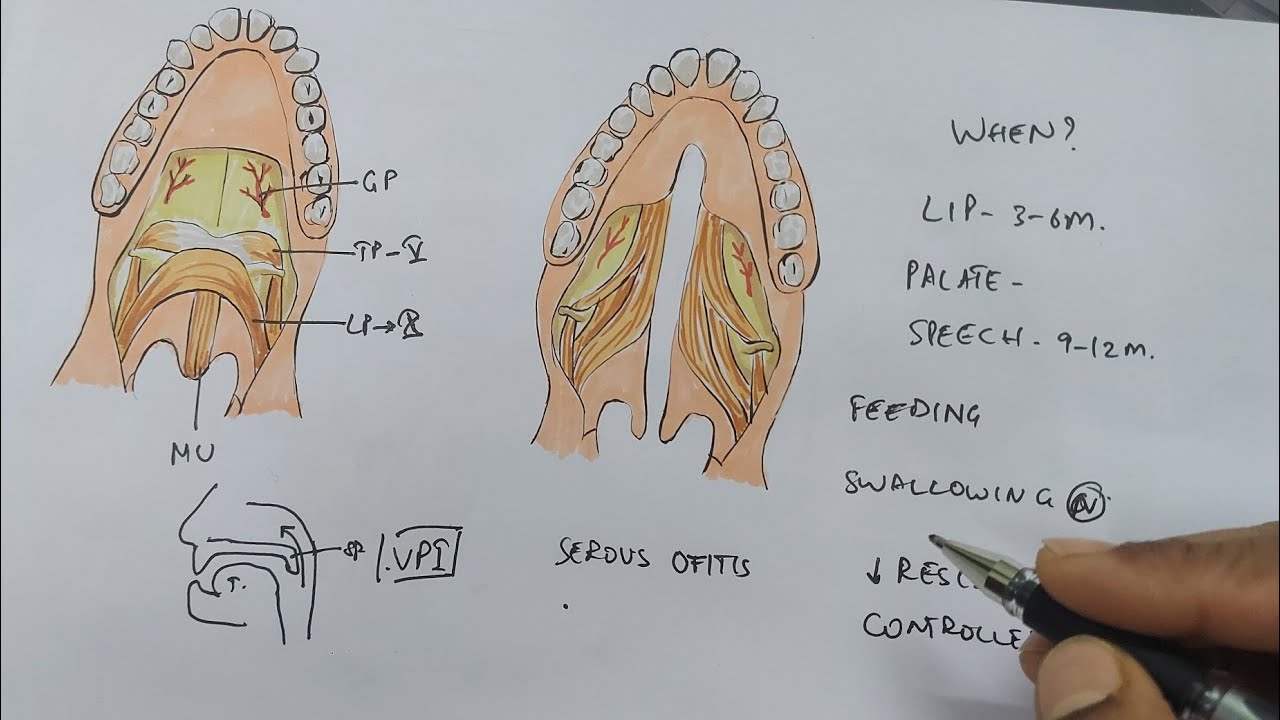 GP
TP-V
LP→X
MU
SP
VPI
T.
SEROUS OTITIS
WHEN?
LIP- 3-6M.
PALATE -
SPEECH - 9-12M.
FEEDING
SWALLOWING N
↓
CONTROLLE